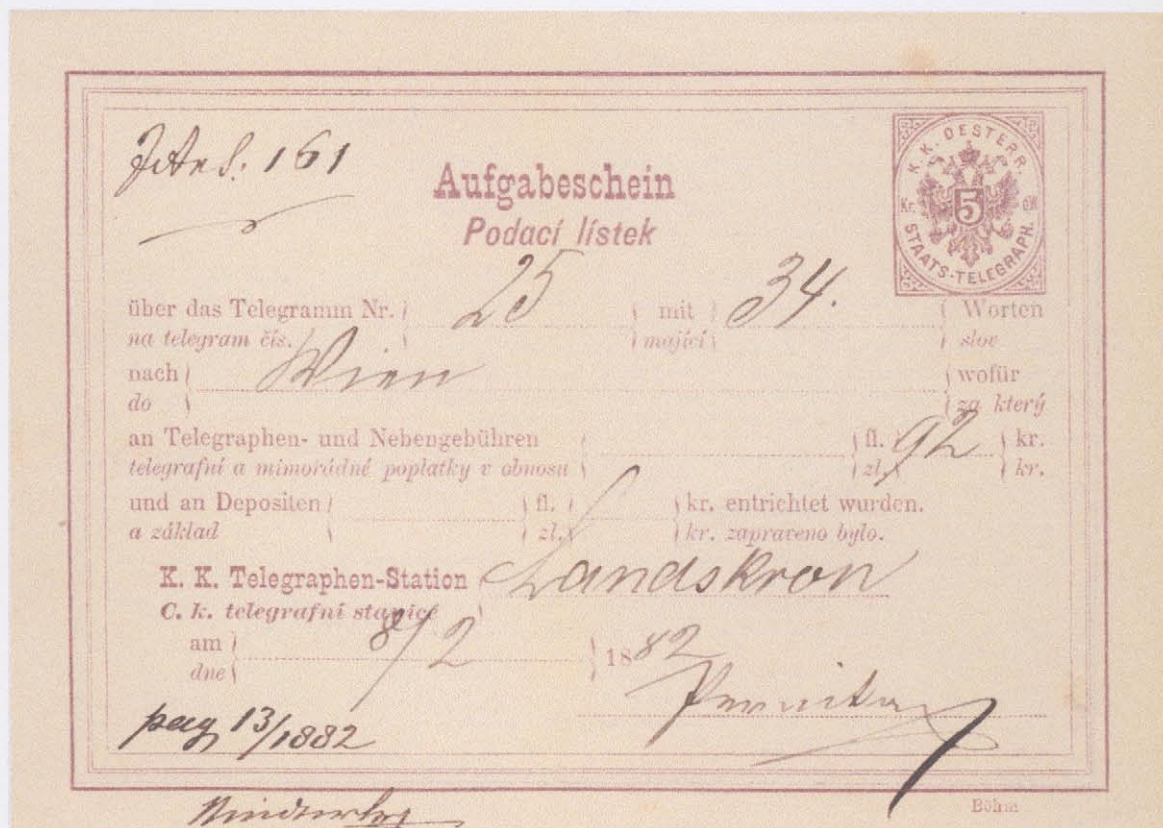 161
Aufgabeschein
Podací lístek
K. K. OESTERR.
Kr. 5 öW
STAATS-TELEGRAPH.
über das Telegramm Nr. 25 mit 34. Worten
na telegram čís. mající slov
nach Wien wofür
do za který
an Telegraphen- und Nebengebühren fl. 92 kr.
telegrafní a mimořádné poplatky v obnosu zl. kr.
und an Depositen fl. kr. entrichtet wurden.
a základ zl. kr. zapraveno bylo.
K. K. Telegraphen-Station Landskron
C. k. telegrafní stanice
am 8/2 1882
dne
pag 13/1882
Böhm